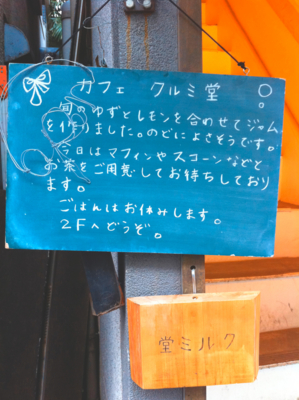 カフェ クルミ堂
旬のゆずとレモンを合わせてジャム
を作りました。のどによさそうです。
今日はマフィンやスコーンなどと
お茶をご用気してお待ちしており
ます。
ごはんはお休みします。
2Fへどうぞ。
堂ミルク